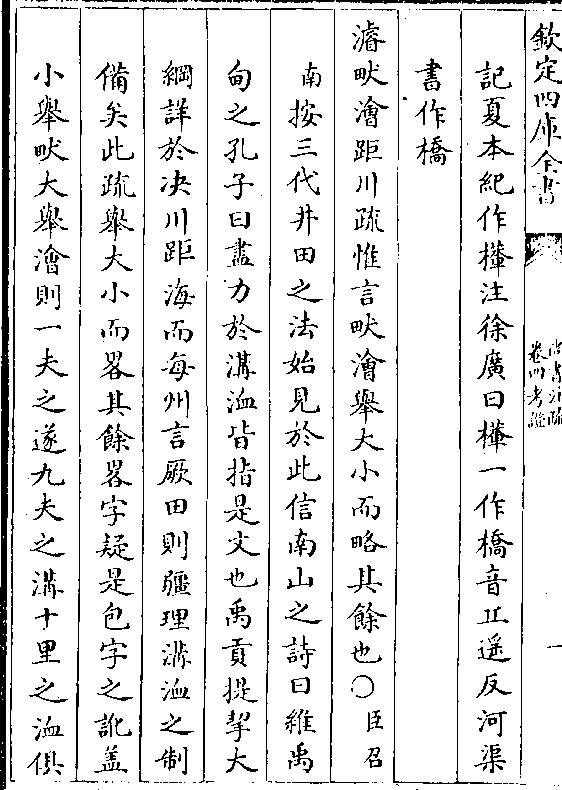 欽定四庫全書
尚書注疏
卷四考證
一
記夏本紀作檋注徐廣曰檋一作橋音丘遥反河渠
書作橋
濬畎澮距川疏惟言畎澮舉大小而略其餘也〇臣召
南按三代井田之法始見於此信南山之詩曰維禹
甸之孔子曰盡力於溝洫皆指是文也禹貢提挈大
綱詳於决川距海而每州言厥田則疆理溝洫之制
備矣此疏舉大小而畧其餘畧字疑是包字之訛蓋
小舉畎大舉澮則一夫之遂九夫之溝十里之洫俱